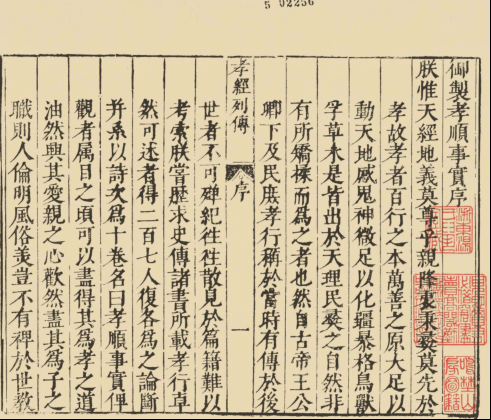 5 02256
御製孝順事實序
朕惟天經地義莫尊乎親降衷秉彝莫先於
孝故孝者百行之本萬善之原大足以
動天地感鬼神微足以化彊暴格鳥獸
孚草木是皆出於天理民彝之自然非
有所矯揉而為之者也然自古帝王公
卿下及民庶孝行稱於當時有傳於後
孝經列傳 序 一
世者不可殫紀往往散見於篇籍難以
考索朕嘗歷求史傳諸書所載孝行卓
然可述者得二百七人復各為之論斷
并系以詩次為十卷名曰孝順事實俾
觀者属目之頃可以盡得其為孝之道
油然興其愛親之心歡然盡其為子之
職則人倫明風俗美豈不有裨於世教